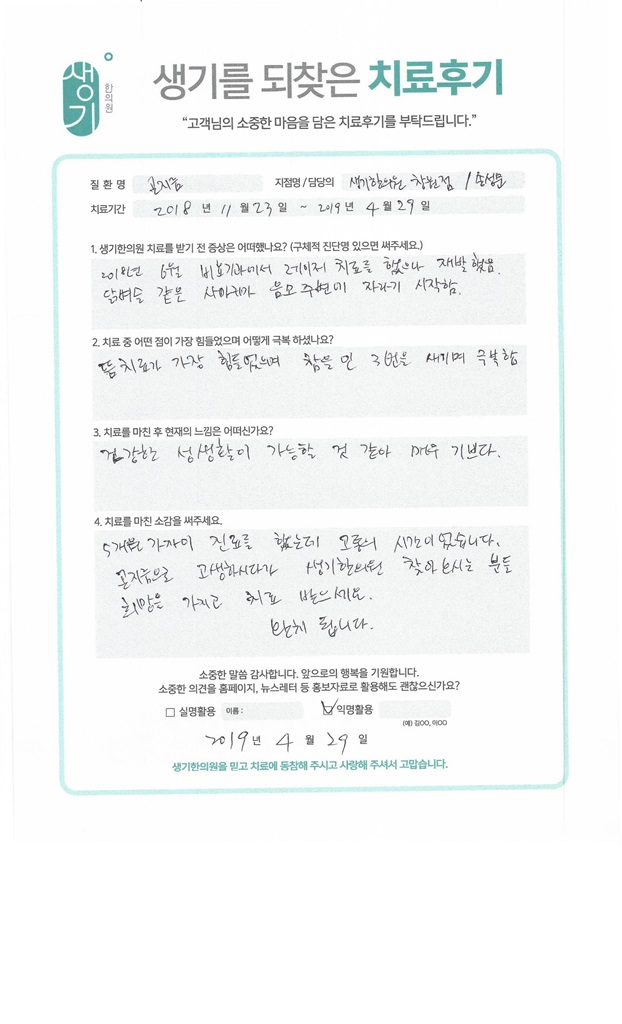 생기
한의원
생기를 되찾은 치료후기
“고객님의 소중한 마음을 담은 치료후기를 부탁드립니다.”
질 환 명 곤지름 지점명 / 담당의 생기한의원 창원점 / 손성문
치료기간 2018 년 11 월 23 일 ~ 2019 년 4 월 29 일
1. 생기한의원 치료를 받기 전 증상은 어떠했나요? (구체적 진단명 있으면 써주세요.)
2018년 6월 비뇨기과에서 레이저 치료를 했으나 재발했음.
닭벼슬 같은 사마귀가 음모 주변에 자라기 시작함.
2. 치료 중 어떤 점이 가장 힘들었으며 어떻게 극복 하셨나요?
뜸치료가 가장 힘들었으며 참을 인 3번을 새기며 극복함
3. 치료를 마친 후 현재의 느낌은 어떠신가요?
건강한 성생활이 가능할 것 같아 매우 기쁘다.
4. 치료를 마친 소감을 써주세요.
5개월 가까이 진료를 했는데 고통의 시간이었습니다.
곤지름으로 고생하시다가 생기한의원 찾아오시는 분들
희망을 가지고 치료 받으세요.
완치 됩니다.
소중한 말씀 감사합니다. 앞으로의 행복을 기원합니다.
소중한 의견을 홈페이지, 뉴스레터 등 홍보자료로 활용해도 괜찮으신가요?
실명활용 이름 : 익명활용
(예) 김OO, 이OO
2019 년 4 월 29 일
생기한의원을 믿고 치료에 동참해 주시고 사랑해 주셔서 고맙습니다.